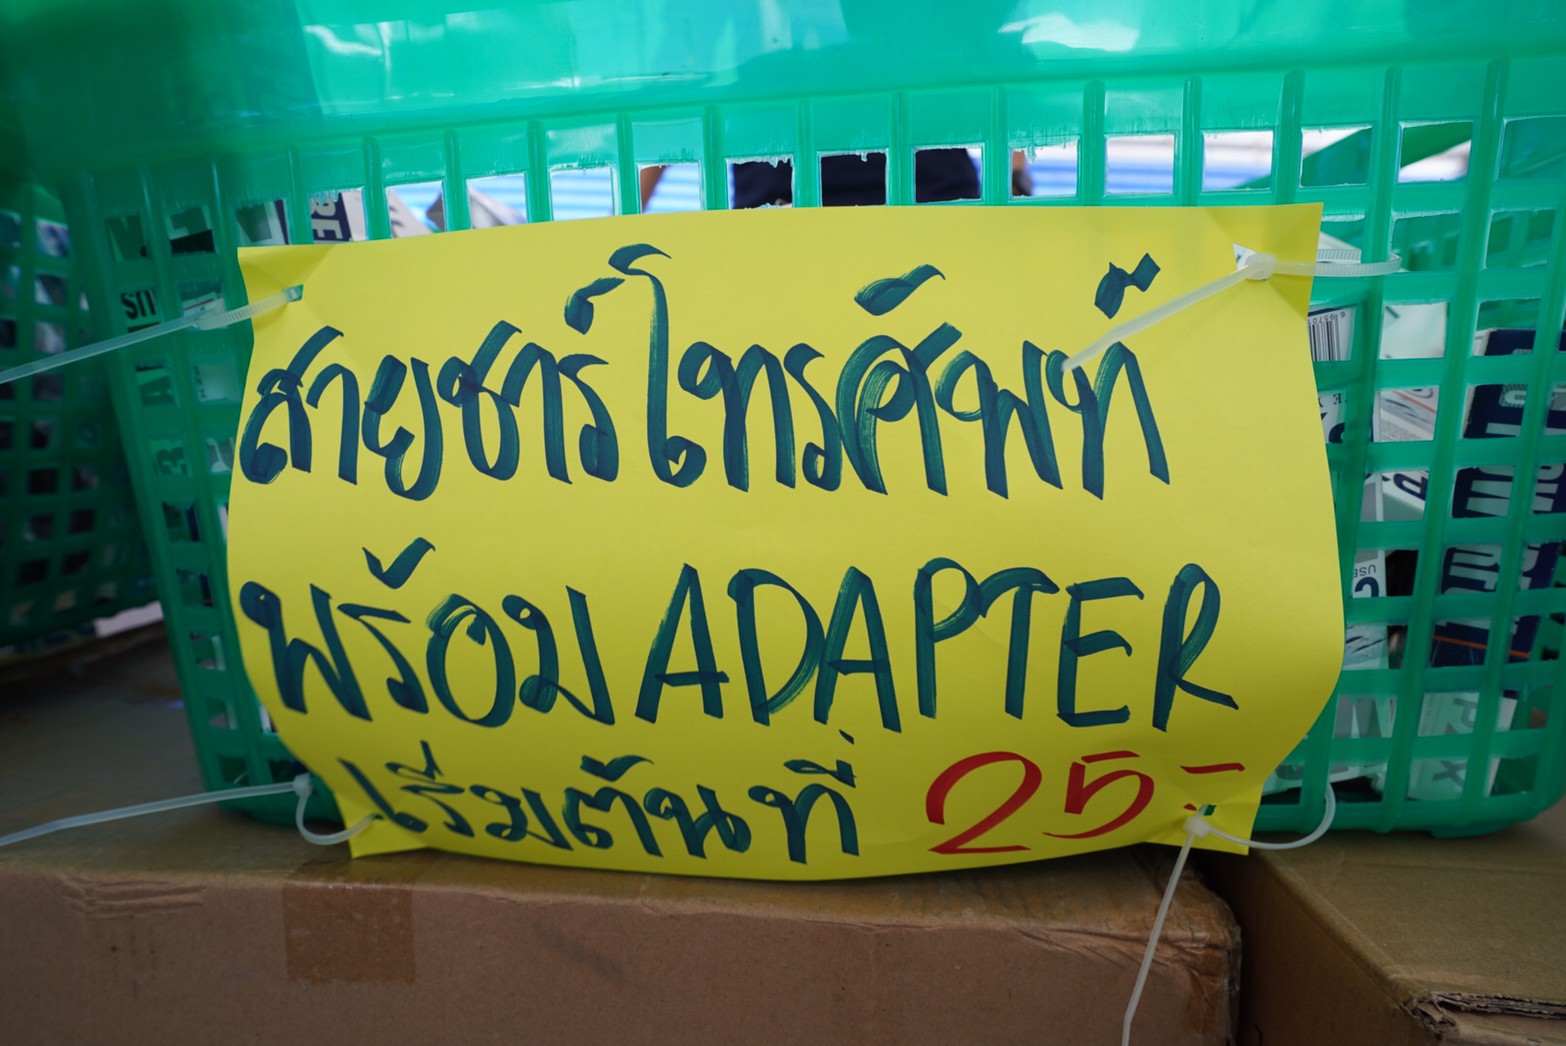 สายชาร์โทรศัพท์
พร้อม ADAPTER
เริ่มต้นที่ 25.-